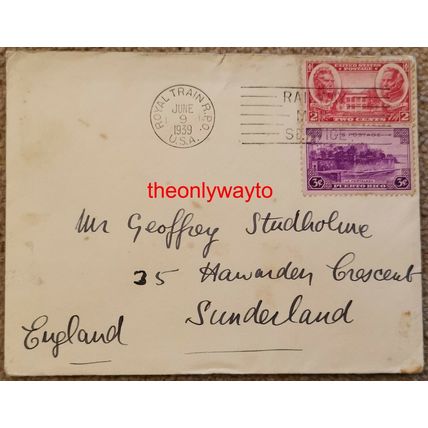 ROYAL TRAIN R.P.O.
JUNE
9
1939
U.S.A.
RAI
M
SE ICE
UNITED STATES
POSTAGE
2 TWO CENTS 2
POSTAGE
3¢ PUERTO RICO 3¢
theonlywayto
Mr Geoffrey Studholme
35 Hawarden Crescent
Sunderland
England